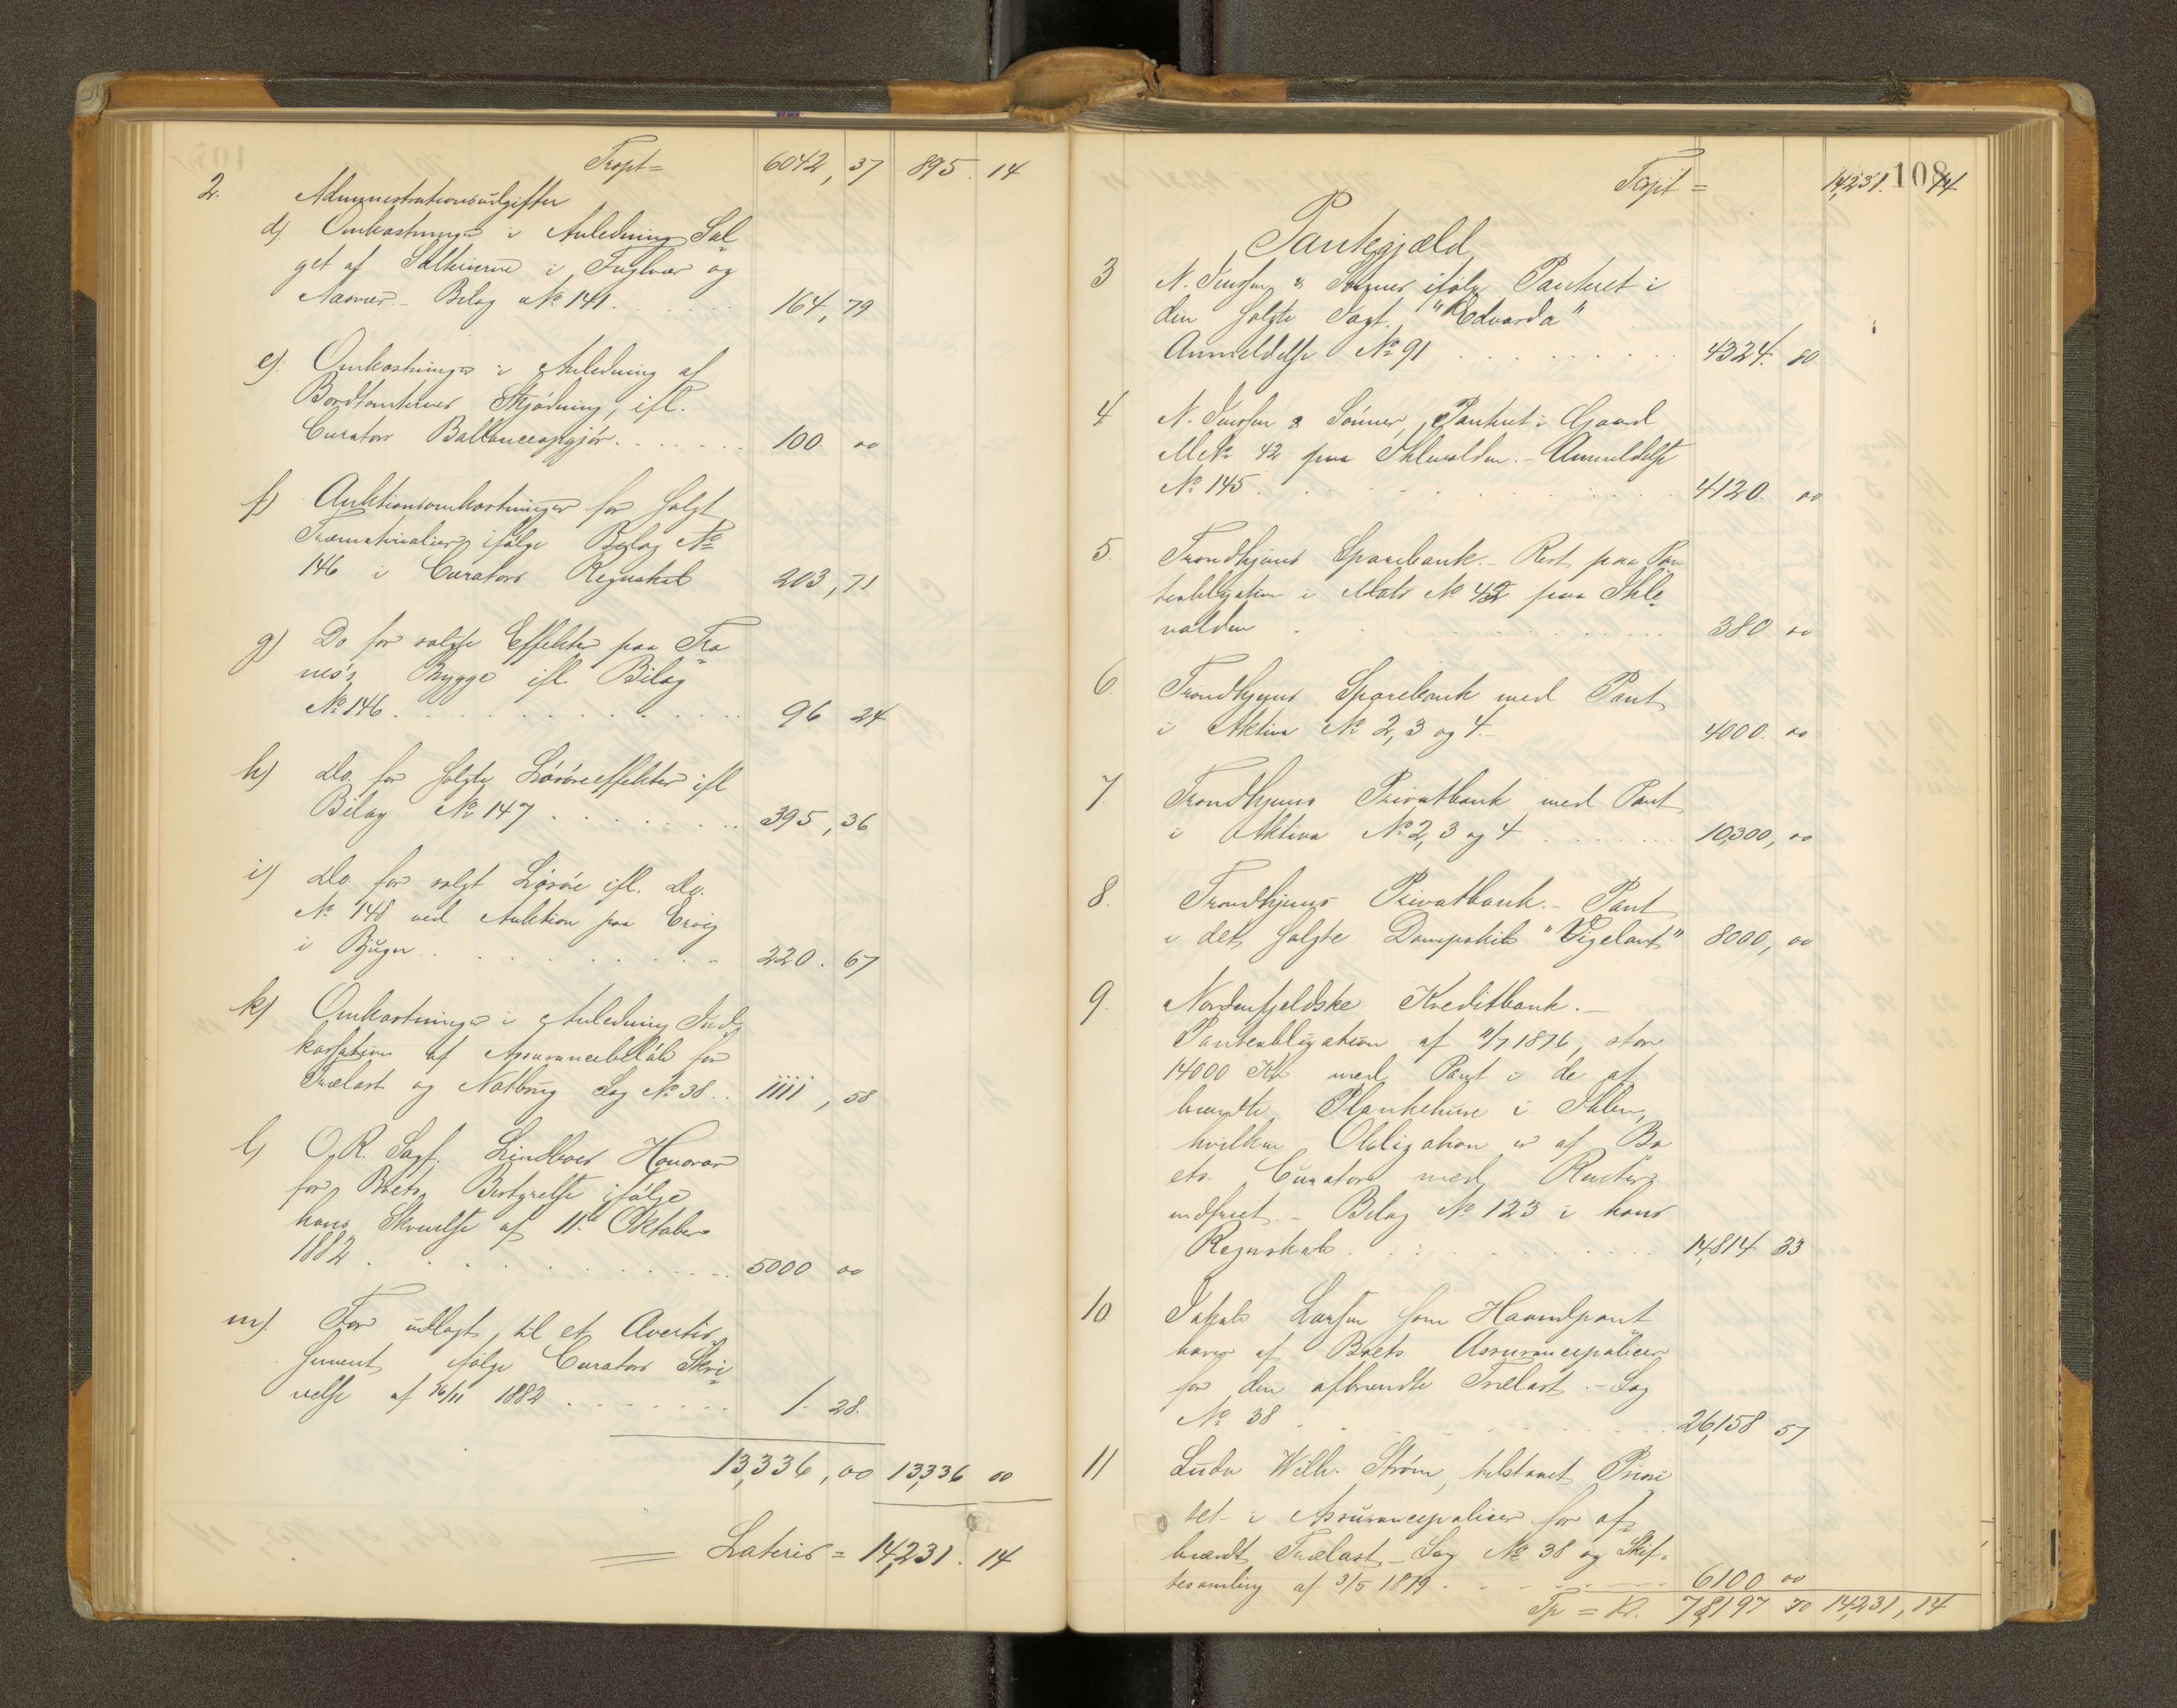 Trspt= 6042,37 895.14
2. Administrationsudgifter
d) Omkostninger i Anledning Sal-
get af Salthuserne i Fuglvær og
Nasvær. - Bilag No 141 164,79
e). Omkostninger i Anledning af
Bordtomternes Skjødning, ifl.
Curators Ballanceopgjør. 100.00
f) Auktionsomkostninger for solgt
Træmaterialier, ifølge Bilag No
146 i Curators Regnskab 203,71
g) Do for solgte Effekter paa Tra-
nes's Brygge ifl. Bilag
No 146. 96 24
h) Do. for solgte Løsøreeffekter ifl
Bilag No 147 395,36
i) Do for solgt Løsøre ifl. Do.
No 148 ved Auktion paa Ervig
i Bjugn 220.67
k) Omkostninger i Anledning Ind-
kassation af Assurancebeløb for
Trælast og Notbrug Sag No 38. 1111,58
l) O.R. Sagf. Lindboes Honorar
for Boets Bestyrelse ifølge
hans Skrivelse af 11te Oktober
1882 5000 00
m). For udlagt til et Avertis-
sement ifølge Curators Skri-
velse af 16/11 1882 1.28.
13,336,00 13,336 00
Lateris = 14,231.14
108
Trspt = 14,231. 14
Pantegjæld
3 N. Jenssen & Sønner ifølge Panteret i
den solgte Jagt. "Edvarda"
Anmeldelse No 91 4324. 80
4 N. Jenssen & Sønner, Panteret i Gaard
M No 42 paa Ihlevolden. - Anmeldelse
No 145. 4120. 00
5. Trondhjems Sparebank. - Rest paa Pan-
teobligation i Matr No 42 paa Ihle-
volden 380 00
6. Trondhjems Sparebank med Pant
i Aktiva No 2, 3 og 4. 4000.00
7. Trondhjems Privatbank med Pant
i Aktiva No 2, 3 og 4 10,300,00
8. Trondhjems Privatbank. - Pant
i det solgte Dampskib "Vigelant" 8000,00
9. Nordenfjeldske Kreditbank. -
Panteobligation af 11/7 1876, stor
14000 Kr med Pant i de af-
brændte Plankehuse i Ihlen,
hvilken Obligation er af Bo-
ets Curator med Renter
indfriet. - Bilag No 123 i hans
Regnskab. 14,814 33
10. Jakob Larsen som Haandpant-
haver af Boets Assurancepolicer
for den afbrændte Trælast. - Sag
No 38 26,158 57
11 Ludv Wilh. Strøm, tilstaaet Priori-
tet i Assurancepolicer for af-
brændt Trælast - Sag No 38 og Skif-
tesamling af 3/5 1879. 6100 00
Tp = Kr. 78,197 70 14,231,14